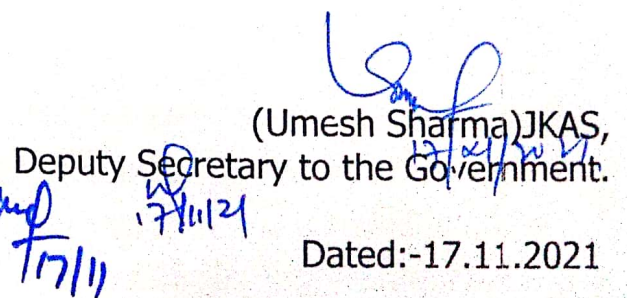 (Umesh Sharma)JKAS,
17/11/2021
Deputy Secretary to the Government.
17/11/21
17/11
Dated:-17.11.2021